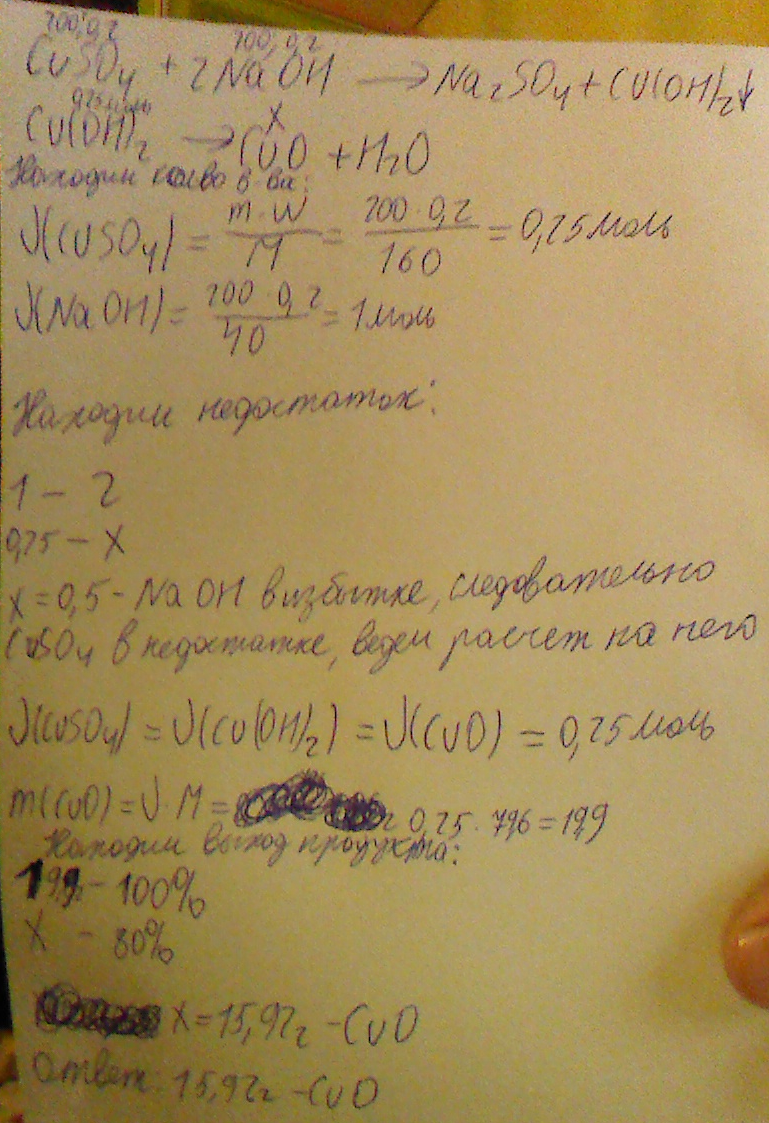 200; 0,2 200; 0,2
CuSO₄ + 2NaOH → Na₂SO₄ + Cu(OH)₂↓
0,25 моль X
Cu(OH)₂ → CuO + H₂O
Находим кол-во в-ва:
ν(CuSO₄) = m·W/M = 200·0,2/160 = 0,25 моль
ν(NaOH) = 200·0,2/40 = 1 моль
Находим недостаток:
1 – 2
0,25 – X
X = 0,5 - NaOH в избытке, следовательно
CuSO₄ в недостатке, ведем расчет на него
ν(CuSO₄) = ν(Cu(OH)₂) = ν(CuO) = 0,25 моль
m(CuO) = ν·M = 0,25·79,6 = 19,9
Находим выход продукта:
19,9г – 100%
X – 80%
X = 15,92г – CuO
Ответ: 15,92г – CuO